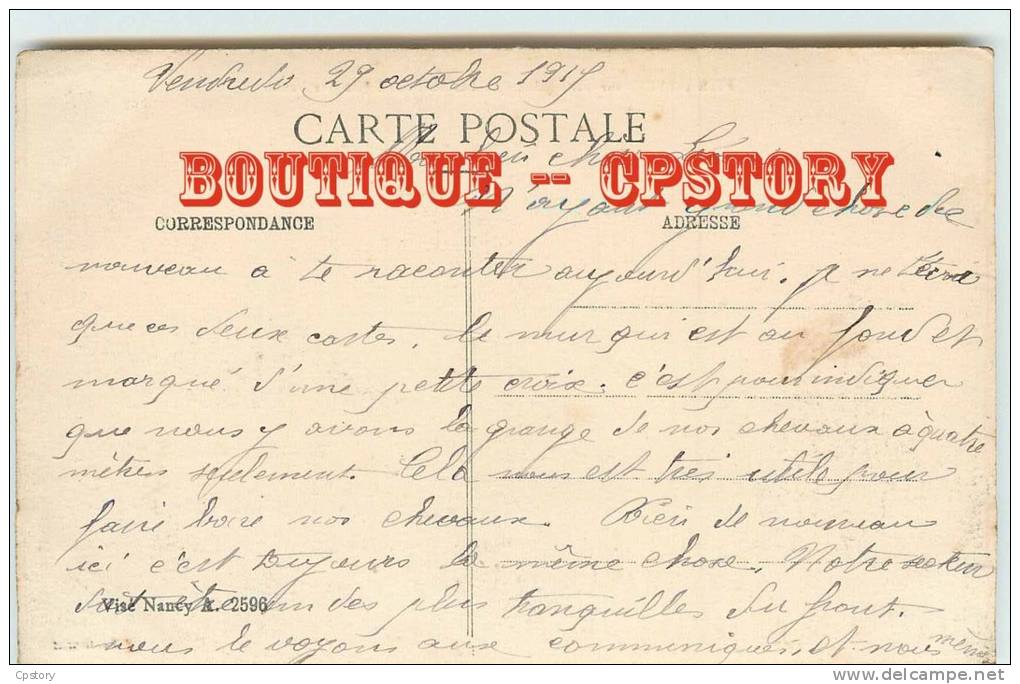 Vendredi 29 octobre 1915
CARTE POSTALE
BOUTIQUE -- CPSTORY
N'ayant grand chose de
CORRESPONDANCE ADRESSE
nouveau à te raconter aujourd'hui. je ne t'écris
que ces deux cartes, le mur qui est au fond et
marqué d'une petite croix. c'est pour indiquer
que nous y avons la grange de nos chevaux à quatre
mètres seulement. Cela nous est très utile pour
faire boire nos chevaux. Rien de nouveau
ici c'est toujours la même chose. Notre secteur
doit être un des plus tranquilles du front.
Visé Nancy A. 2596
nous le voyons aux communiqués, et nous même
Cpstory
delcampe.net